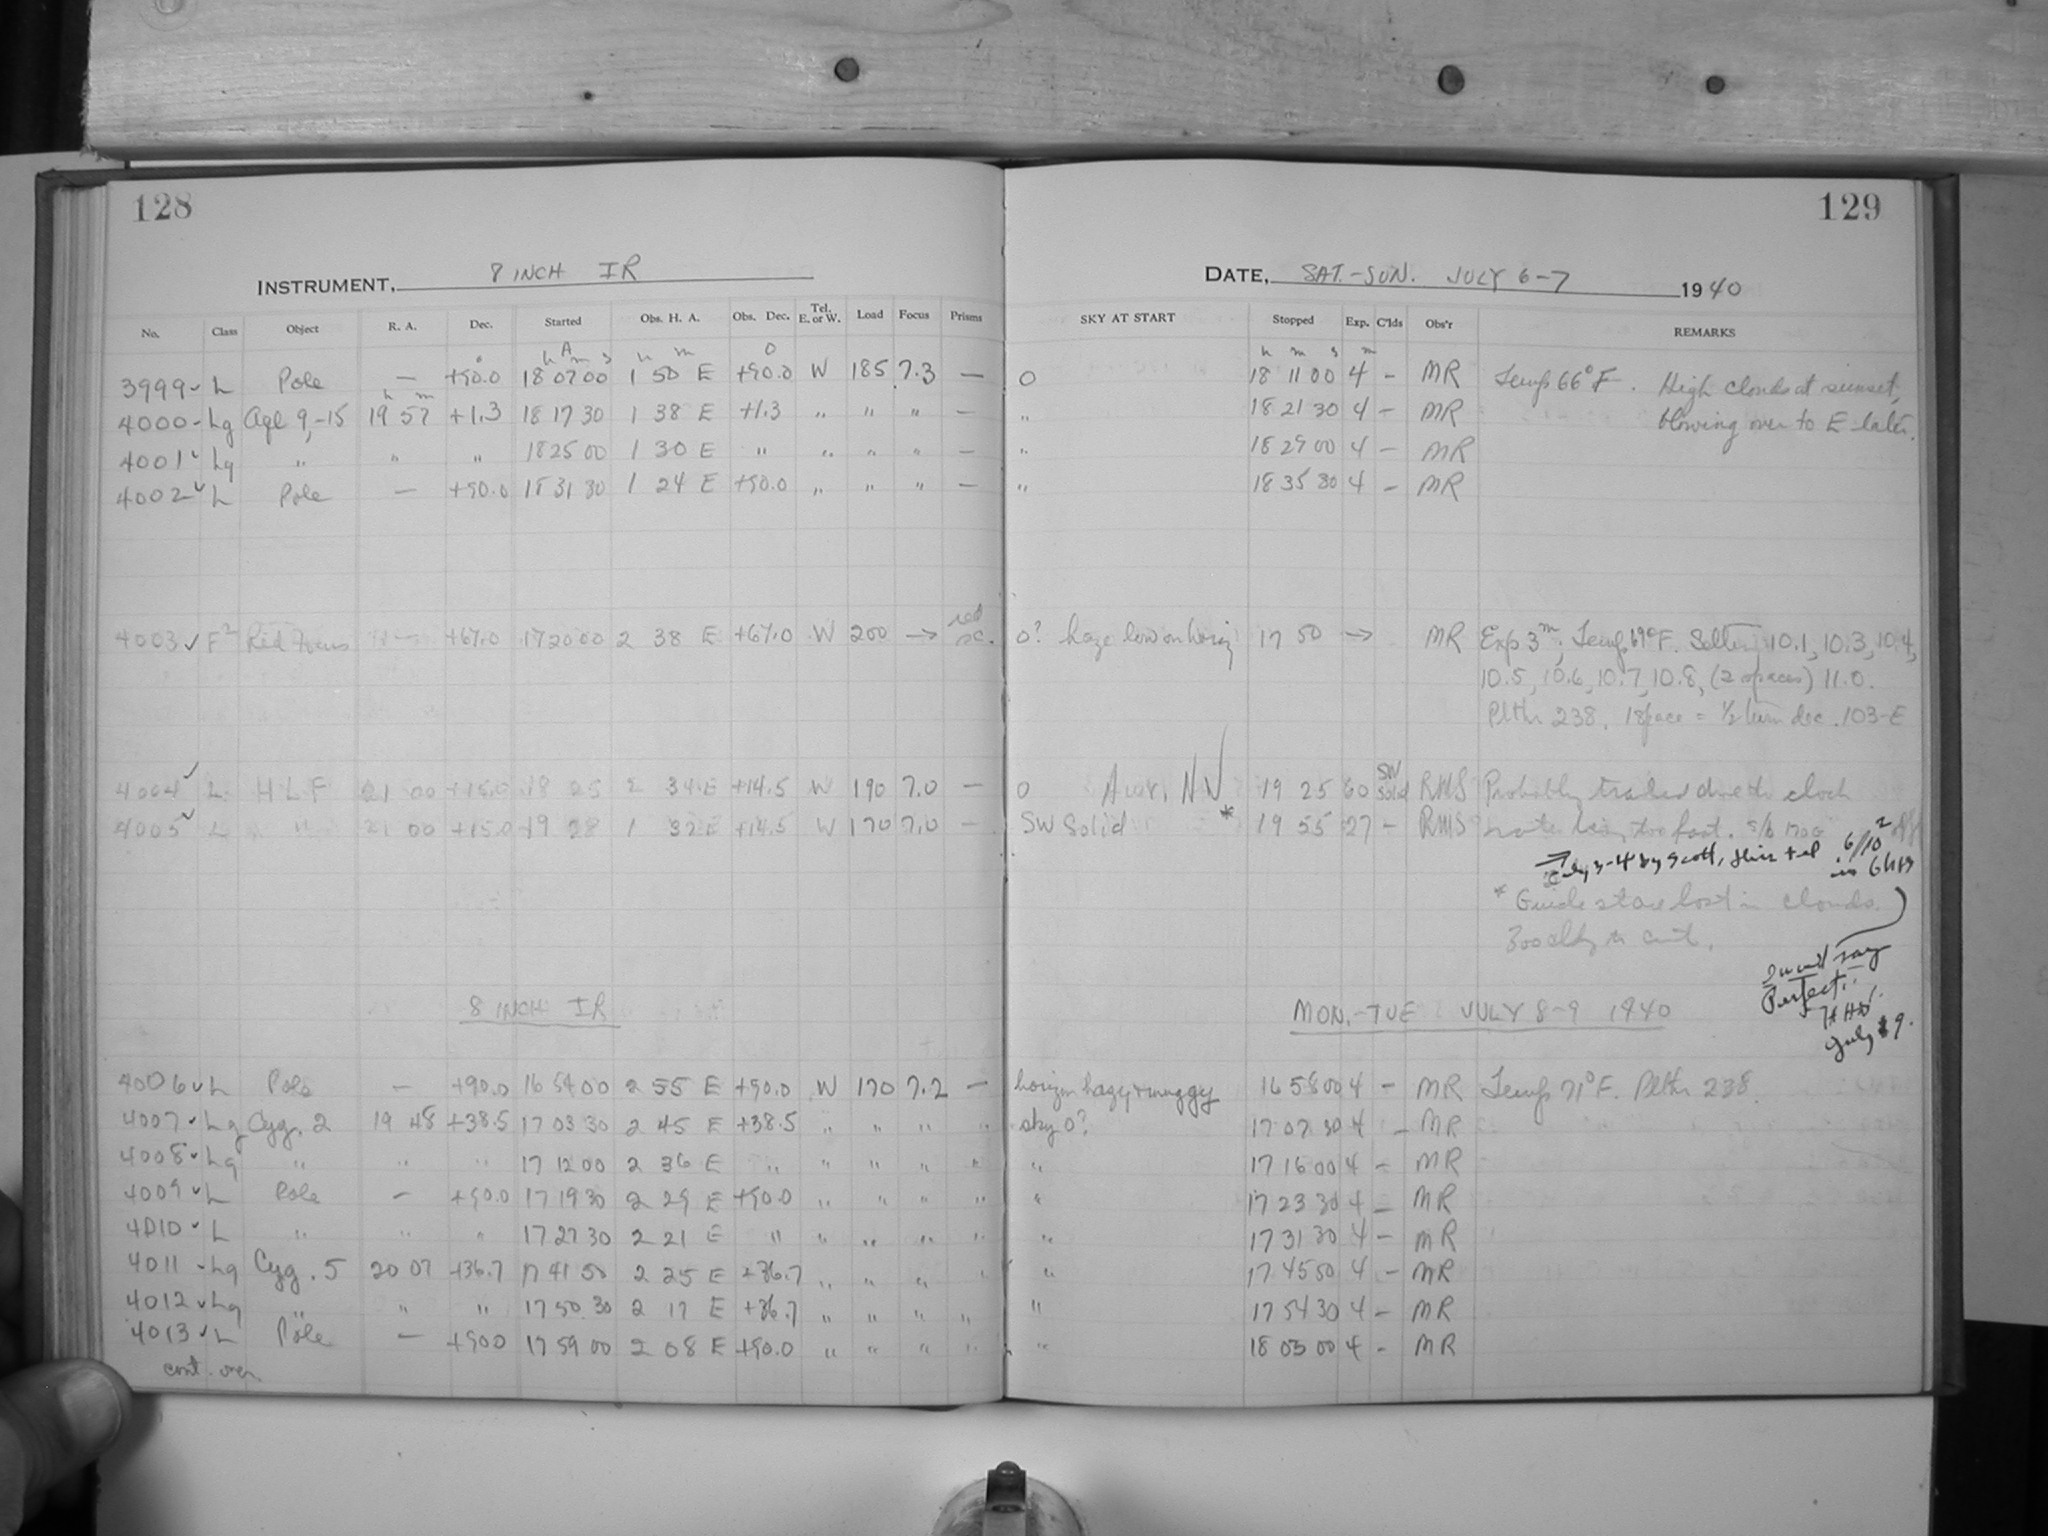 128
129
INSTRUMENT, 8 INCH IR
DATE, SAT.-SUN. JULY 6-7 1940
No. Class Object R. A. Dec. Started Obs. H. A. Obs. Dec. Tel. E. or W. Load Focus Prisms SKY AT START Stopped Exp. C'lds Obs'r REMARKS
3999 L Pole — +90.0 18 07 00 1 50 E +90.0 W 185 7.3 — 0 18 11 00 4 - MR Temp 66° F. High clouds at sunset,
4000 Lg Aql 9,-15 19 57 +1.3 18 17 30 1 38 E +1.3 " " " — " 18 21 30 4 - MR blowing over to E later.
4001 Lg " " " 18 25 00 1 30 E " " " " — " 18 29 00 4 - MR
4002 L Pole — +90.0 18 31 30 1 24 E +90.0 " " " — " 18 35 30 4 - MR
4003 F² Red Focus +67.0 17 20 00 2 38 E +67.0 W 200 → red sc. 0? haze low on horiz 17 50 → MR Exp 3m; Temp 69° F. 10.1, 10.3, 10.4,
10.5, 10.6, 10.7, 10.8, (2 spaces) 11.0.
Plthr 238. 1 space = ½ turn dec. 103-E
4004 L HLF 21 00 +15.0 18 25 2 34 E +14.5 W 190 7.0 — 0 19 25 60 SW solid RMS Probably trailed due to clock
4005 L " 21 00 +15.0 19 28 1 32 E +14.5 W 170 7.0 — SW Solid * 19 55 27 - RMS rate being too fast.
July 3-4 by Scott, 6/10
in 6 hrs
* Guide star lost in clouds.
Perfect!
July 9.
8 INCH IR
MON.-TUE JULY 8-9 1940
4006 L Pole — +90.0 16 54 00 2 55 E +90.0 W 170 7.2 — horizon hazy + muggy 16 58 00 4 - MR Temp 71° F. Plthr 238.
4007 Lg Cyg. 2 19 48 +38.5 17 03 30 2 45 E +38.5 " " " " sky 0? 17 07 30 4 - MR
4008 Lg " " " 17 12 00 2 36 E " " " " " " 17 16 00 4 - MR
4009 L Pole — +90.0 17 19 30 2 29 E +90.0 " " " " " 17 23 30 4 - MR
4010 L " " " 17 27 30 2 21 E " " " " " " 17 31 30 4 - MR
4011 Lg Cyg. 5 20 07 +36.7 17 41 50 2 25 E +36.7 " " " " " 17 45 50 4 - MR
4012 Lg " " " 17 50 30 2 17 E +36.7 " " " " " 17 54 30 4 - MR
4013 L Pole — +90.0 17 59 00 2 08 E +90.0 " " " " " 18 03 00 4 - MR
cont. over